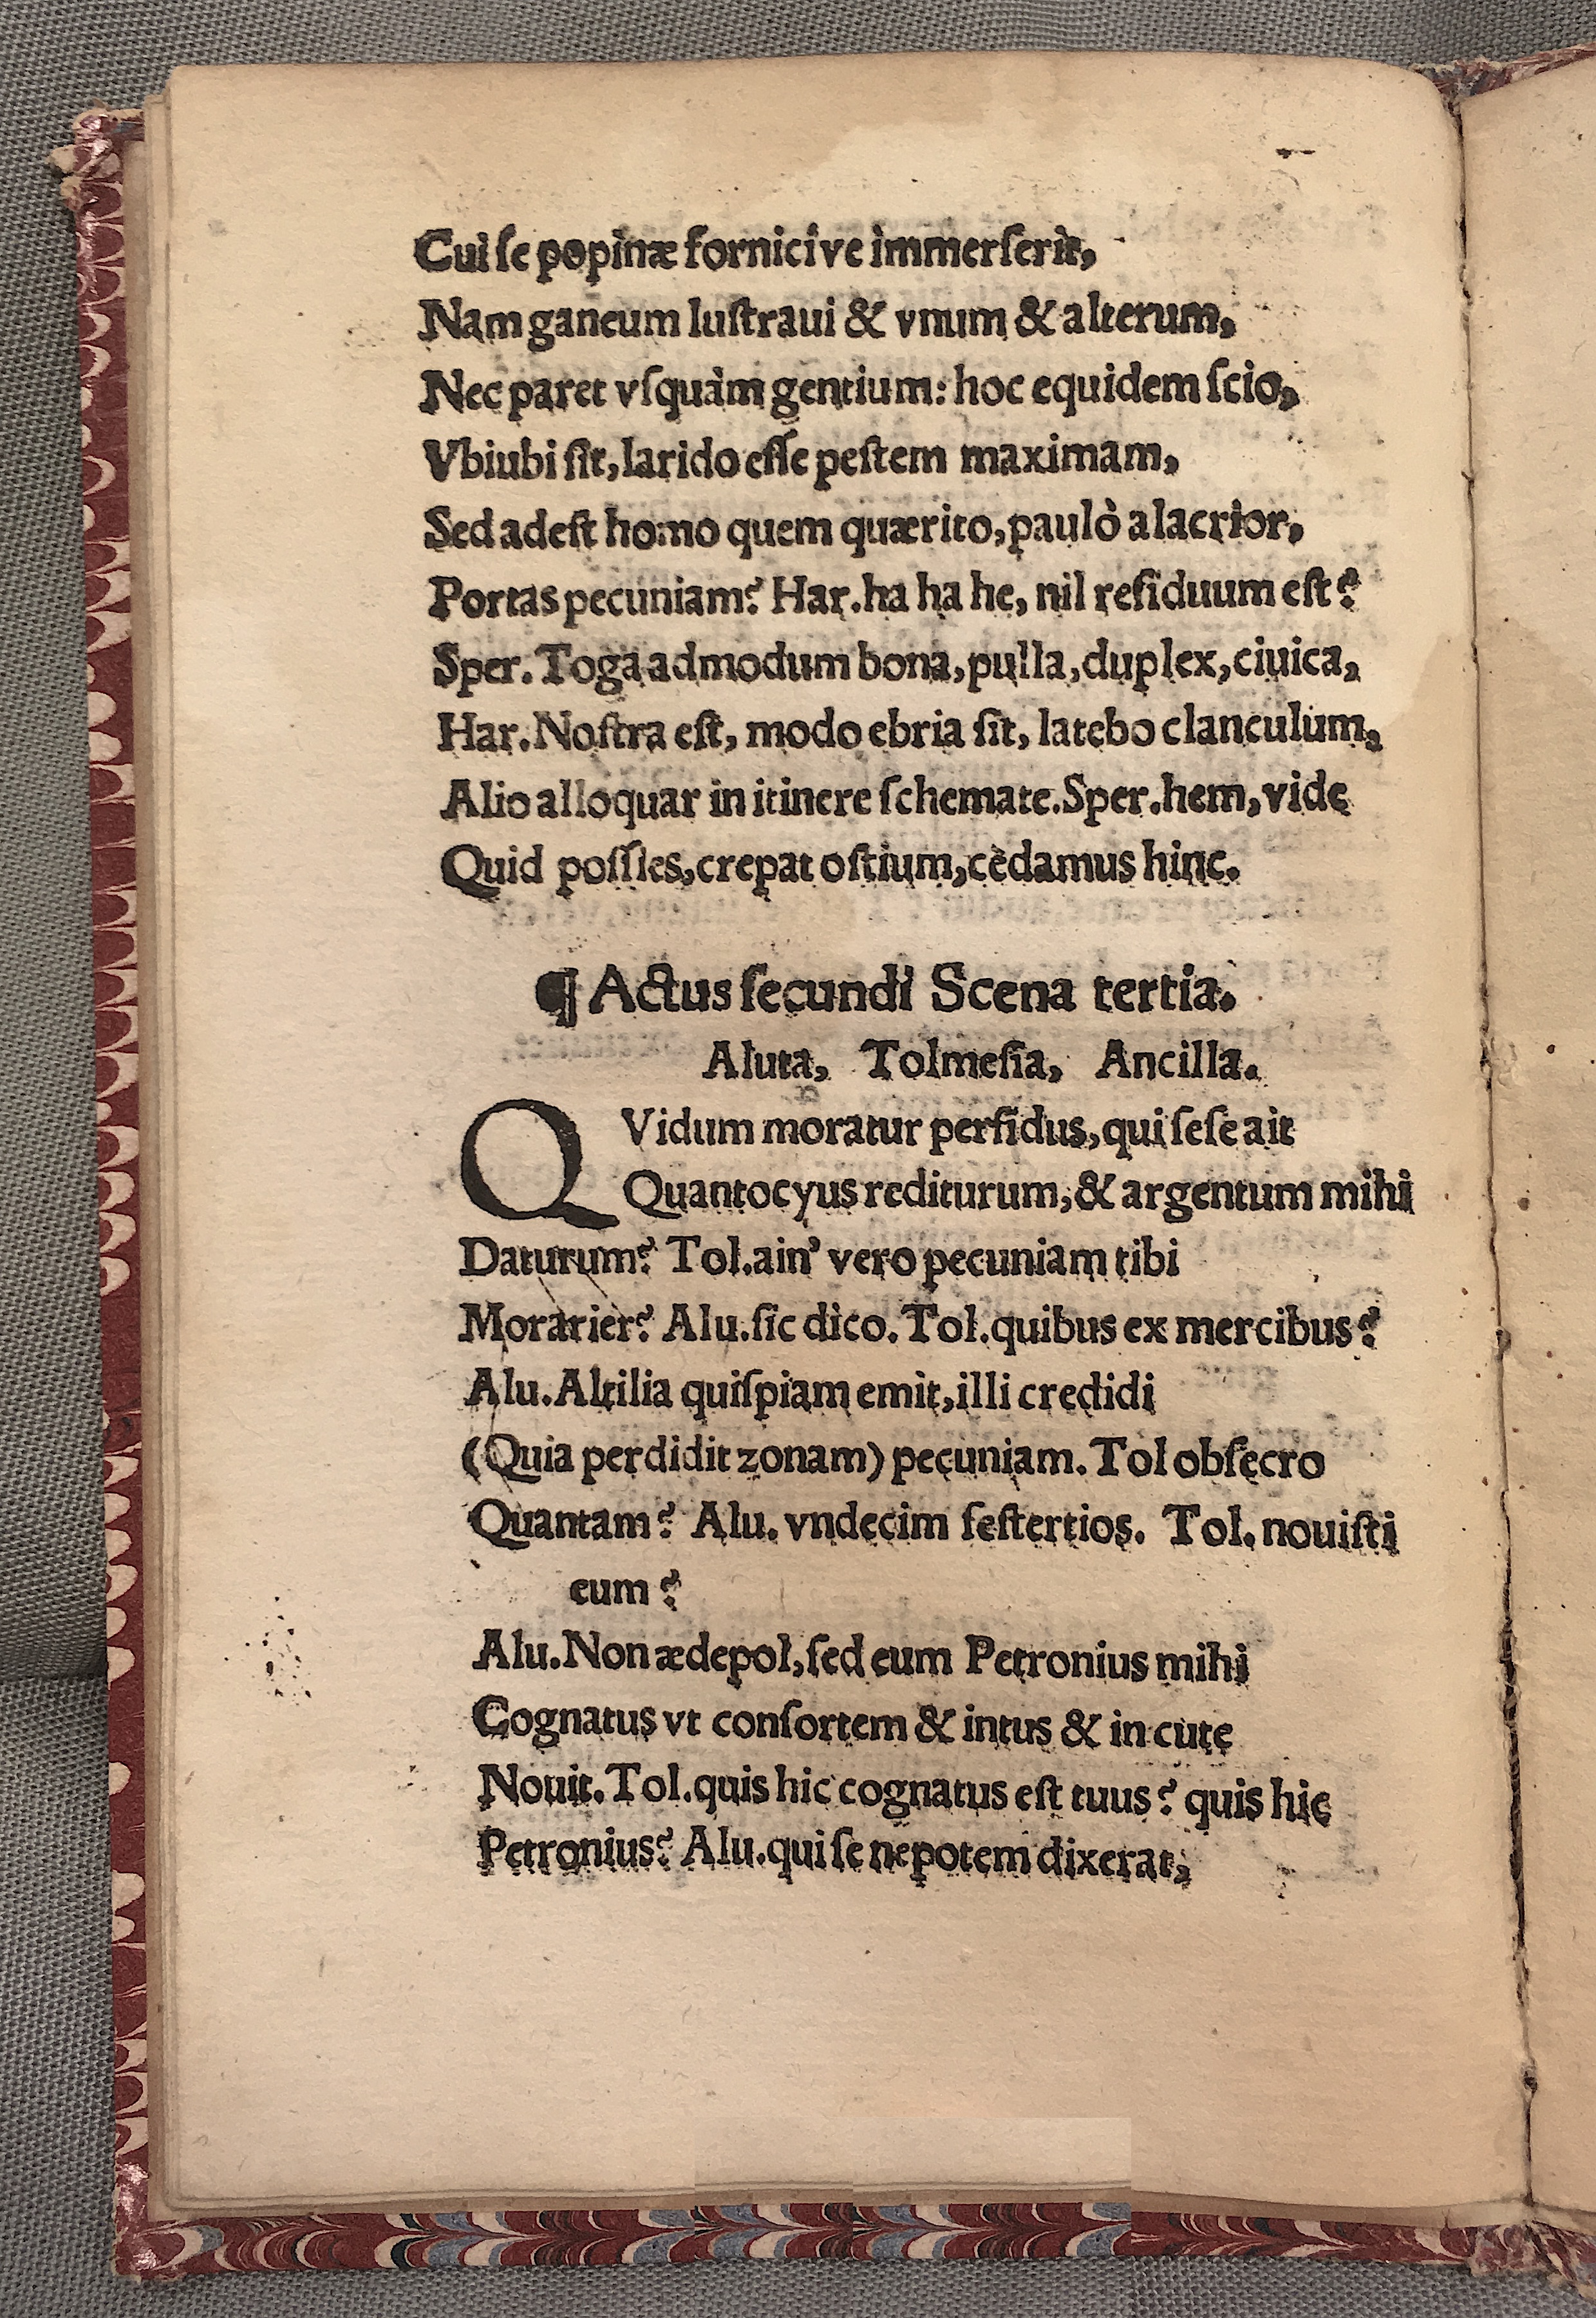 Cui ſe popinæ fornicive immerſerit,
Nam ganeum luſtraui & vnum & alterum,
Nec paret vſquàm gentium: hoc equidem ſcio,
Vbiubi ſit, larido eſſe peſtem maximam,
Sed adeſt homo quem quærito, paulò alacrior,
Portas pecuniam? Har. ha ha he, nil reſiduum eſt?
Sper. Toga admodum bona, pulla, duplex, ciuica,
Har. Noſtra eſt, modo ebria ſit, latebo clanculum,
Alio alloquar in itinere ſchemate. Sper. hem, vide
Quid poſſies, crepat oſtium, cèdamus hinc.
¶ Actus ſecundi Scena tertia.
Aluta, Tolmeſia, Ancilla.
QVidum moratur perfidus, qui ſeſe ait
Quantocyus rediturum, & argentum mihi
Daturum? Tol. ain' vero pecuniam tibi
Morarier? Alu. ſic dico. Tol. quibus ex mercibus?
Alu. Altilia quiſpiam emit, illi credidi
(Quia perdidit zonam) pecuniam. Tol obſecro
Quantam? Alu. vndecim ſeſtertios. Tol. nouiſti
eum?
Alu. Non ædepol, ſed eum Petronius mihi
Cognatus vt conſortem & intus & in cute
Nouit. Tol. quis hic cognatus eſt tuus? quis hic
Petronius? Alu. qui ſe nepotem dixerat,